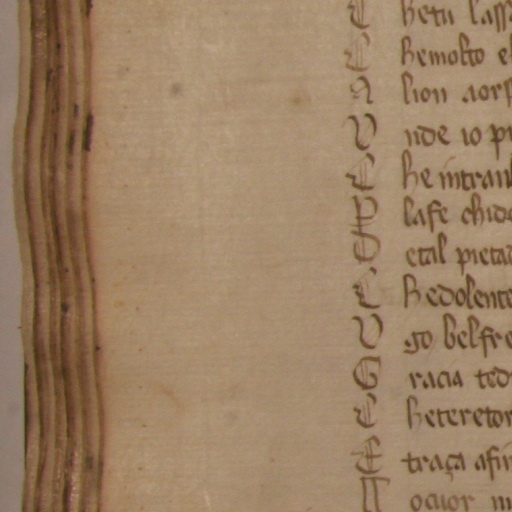 C hetu lass
C hemolto el
A lion aors
V nde io pi
C he intrau
P lase chido
E etal pieta
C hedolente
V go belfre
G racia ted
C heteretor
E traça afin
N ocior m